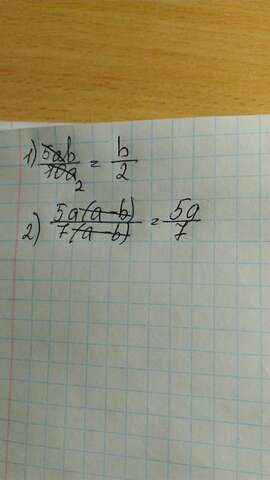 1) 5ab/10a 2 = b/2
2) 5a(a-b)/7(a-b) = 5a/7